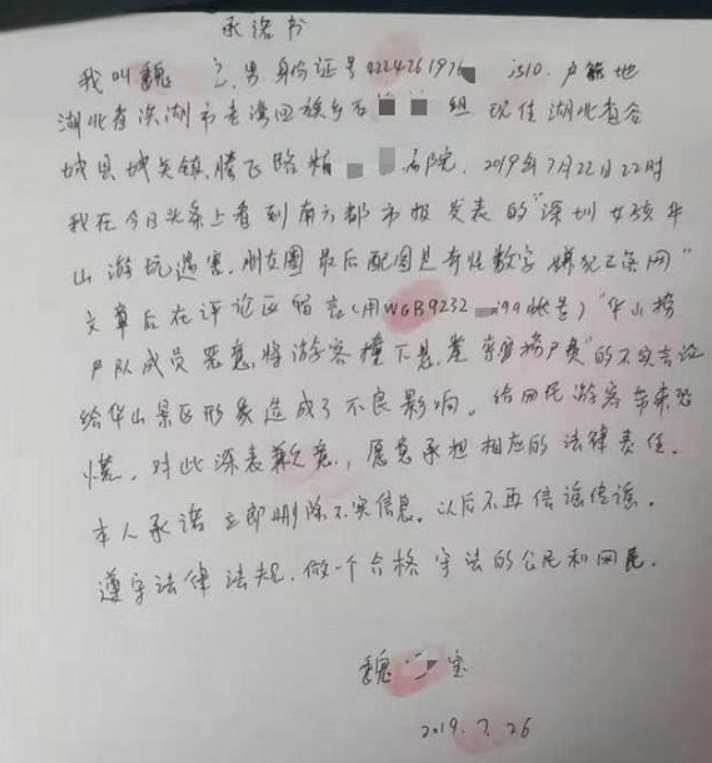 承诺书
我叫魏 男.身份证号422426197 1510.户籍地
湖北省洪湖市老湾回族乡 组 现住湖北省谷
城县城关镇.腾飞路 院.2019年7月22日22时
我在今日头条上看到南方都市报发表的"深圳女孩华
山游玩遇害.朋友圈最后配图是奇怪数字 嫌犯已落网"
文章后在评论区留言(用WGB9232 账号)"华山捞
尸队成员恶意.将游客撞下悬.崖 索要捞尸费"的不实言论
给华山景区形象造成了不良影响。给网民游客带来恐
慌.对此深表歉意,愿意承担相应的法律责任.
本人承诺立即删除不实信息.以后不再信谣传谣.
遵守法律法规.做一个合格守法的公民和网民.
魏 宝
2019.7.26